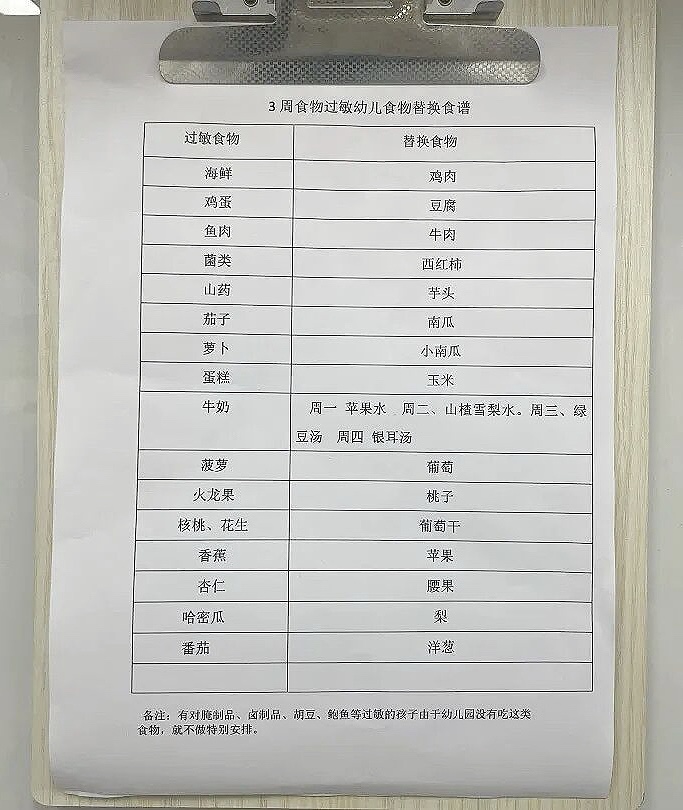 3 周食物过敏幼儿食物替换食谱
过敏食物 替换食物
海鲜 鸡肉
鸡蛋 豆腐
鱼肉 牛肉
菌类 西红柿
山药 芋头
茄子 南瓜
萝卜 小南瓜
蛋糕 玉米
牛奶 周一 苹果水 周二、山楂雪梨水。周三、绿
豆汤 周四 银耳汤
菠萝 葡萄
火龙果 桃子
核桃、花生 葡萄干
香蕉 苹果
杏仁 腰果
哈密瓜 梨
番茄 洋葱
备注：有对腌制品、卤制品、胡豆、鲍鱼等过敏的孩子由于幼儿园没有吃这类
食物，就不做特别安排。